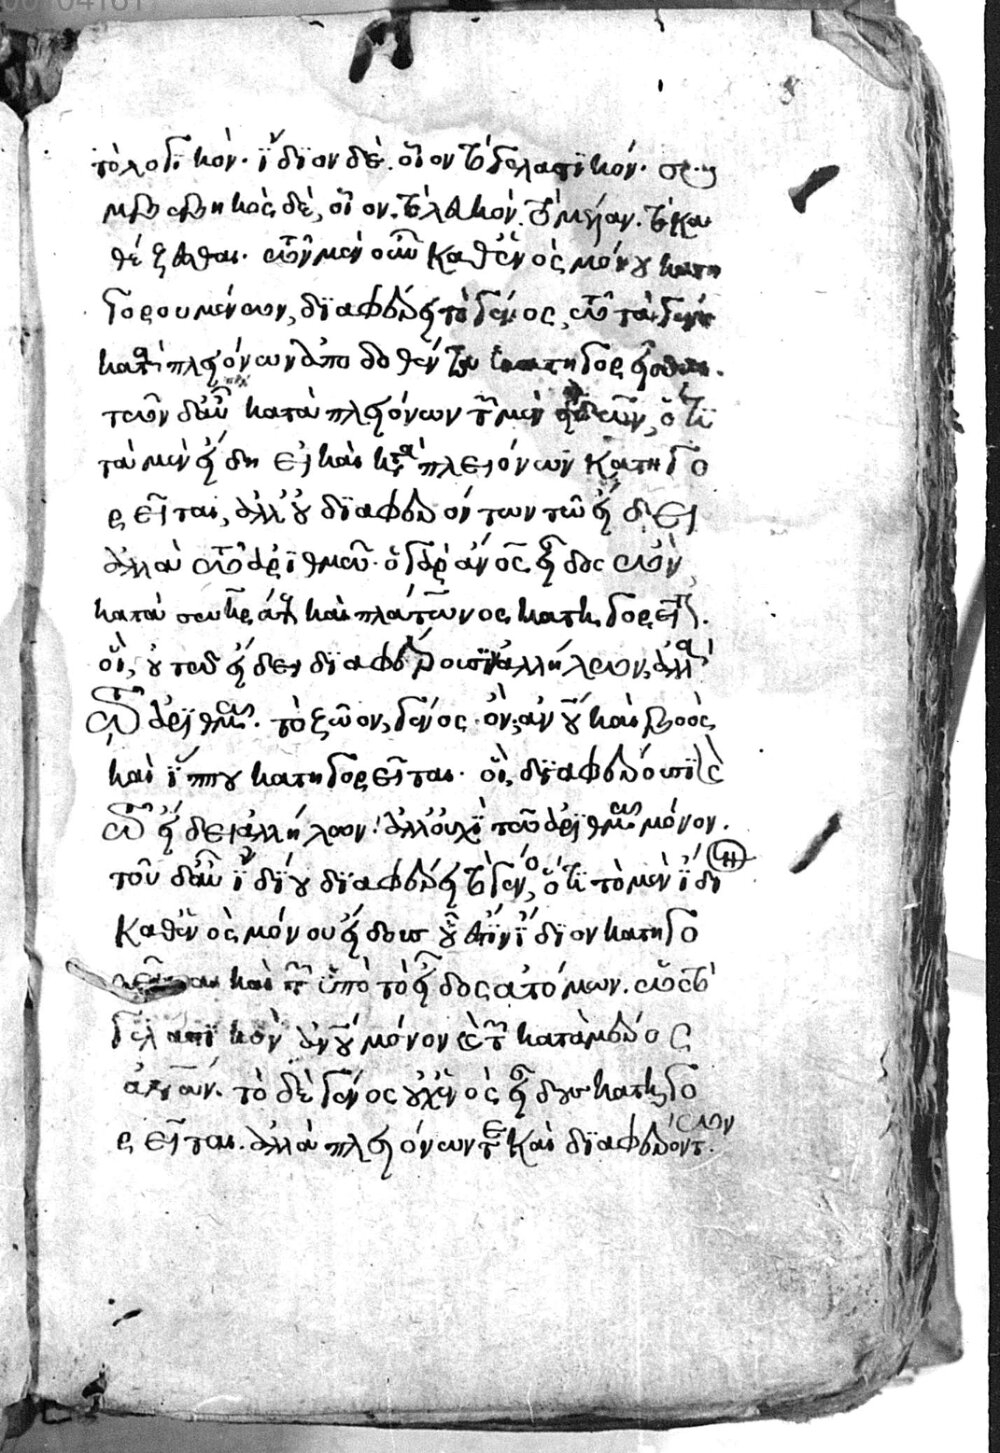 τὸ λογικόν· ἴδιον δὲ. οἷον τὸ γελαστικόν· συμ
βεβηκὸς δὲ, οἷον. τὸ λευκόν. τὸ μέλαν. τὸ κα
θέζεσθαι. τῶν μὲν οὖν καθ' ἑνὸς μόνου κατη
γορουμένων, διαφέρει τὸ γένος, τῶ τὰ γένη
κατὰ πλειόνων ἀποδοθὲν κατηγορεῖσθαι.
τῶν δ' αὖ κατὰ πλειόνων τῶν μὲν εἰδῶν, ὅτι
τὰ μὲν εἴδη εἰ καὶ κατὰ πλειόνων κατηγο
ρεῖται, ἀλλ' οὐ διαφερόντων τῶ εἴδει
ἀλλὰ τῶ ἀριθμῶ· ὁ γὰρ ἄνος εἶδος ὢν
κατὰ σωκράτους καὶ πλάτωνος κατηγορεῖται.
οἳ, οὐ τῶ εἴδει διαφέρουσιν ἀλλήλων, ἀλλὰ
τῶ ἀριθμῶ. τὸ ζῶον, γένος ὂν, ἀνου καὶ βοὸς
καὶ ἵππου κατηγορεῖται· οἳ, διαφέρουσι καὶ
τῶ εἴδει ἀλλήλων· ἀλλ' οὐχὶ τῶ ἀριθμῶ μόνον.
τοῦ δ' αὖ ἰδίου διαφέρει τὸ γένος, ὅτι τὸ μὲν ἴδι
καθ' ἑνὸς μόνου εἴδους οὗ ἐστιν ἴδιον κατηγο
ρεῖται καὶ τῶν ὑπὸ τὸ εἶδος ἀτόμων. ὡς τὸ
γελαστικὸν ἀνου μόνον καὶ τῶν κατὰ μέρος
ἀνων. τὸ δὲ γένος οὐχ ἑνὸς εἴδους κατηγο
ρεῖται. ἀλλὰ πλειόνων τε καὶ διαφερόντων.